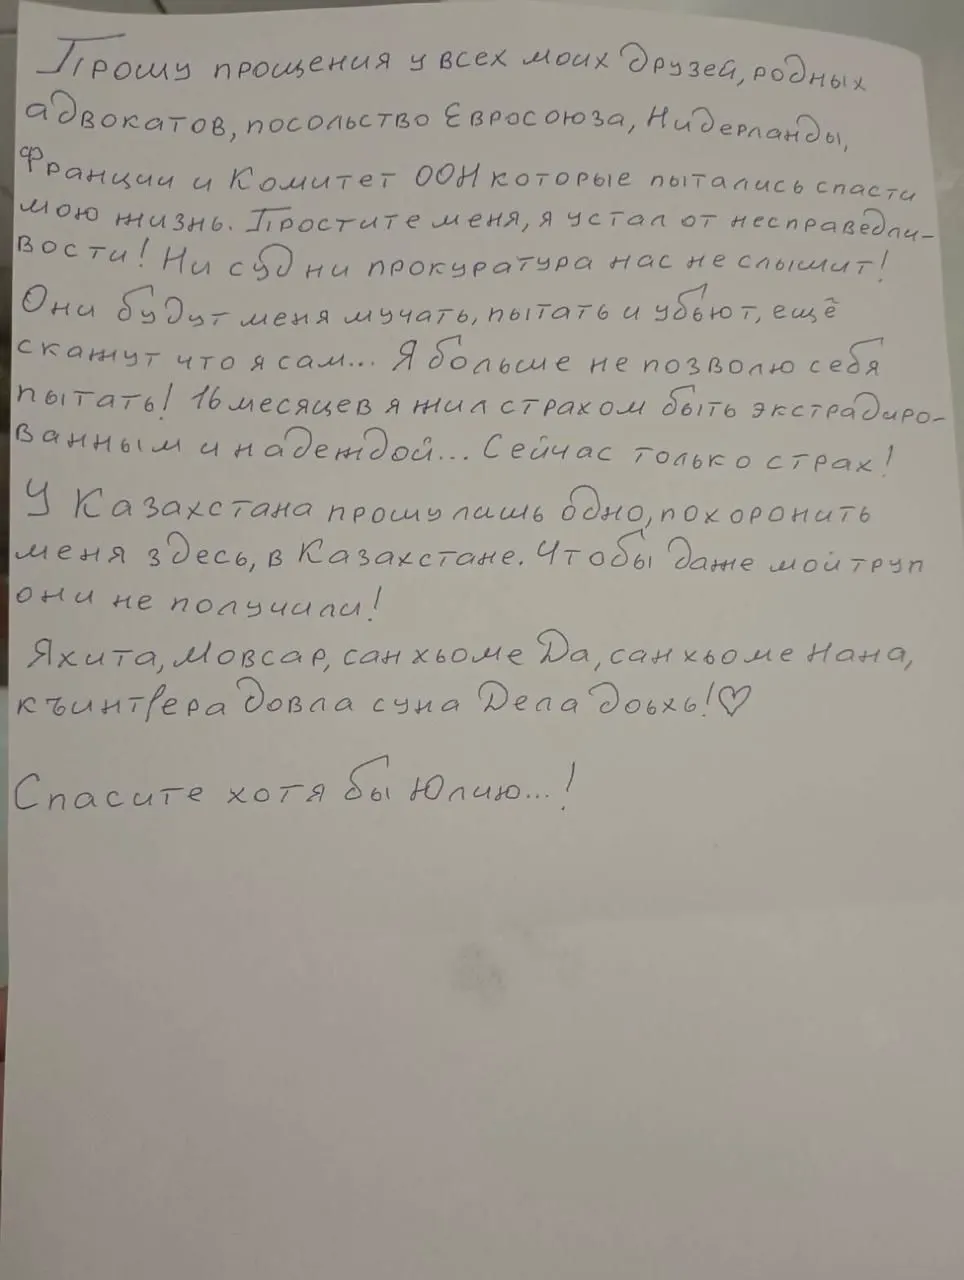 Прошу прощения у всех моих друзей, родных
адвокатов, посольство Евросоюза, Нидерланды,
Франции и Комитет ООН которые пытались спасти
мою жизнь. Простите меня, я устал от несправедли-
вости! Ни суд ни прокуратура нас не слышит!
Они будут меня мучать, пытать и убьют, ещё
скажут что я сам... Я больше не позволю себя
пытать! 16 месяцев я жил страхом быть экстрадиро-
ванным и надеждой... Сейчас только страх!
У Казахстана прошу лишь одно, похоронить
меня здесь, в Казахстане. Чтобы даже мой труп
они не получили!
Яхита, Мовсар, сан хьоме Да, сан хьоме Нана,
къинтӀера довла суна Дела доьхь!♡
Спасите хотя бы Юлию...!